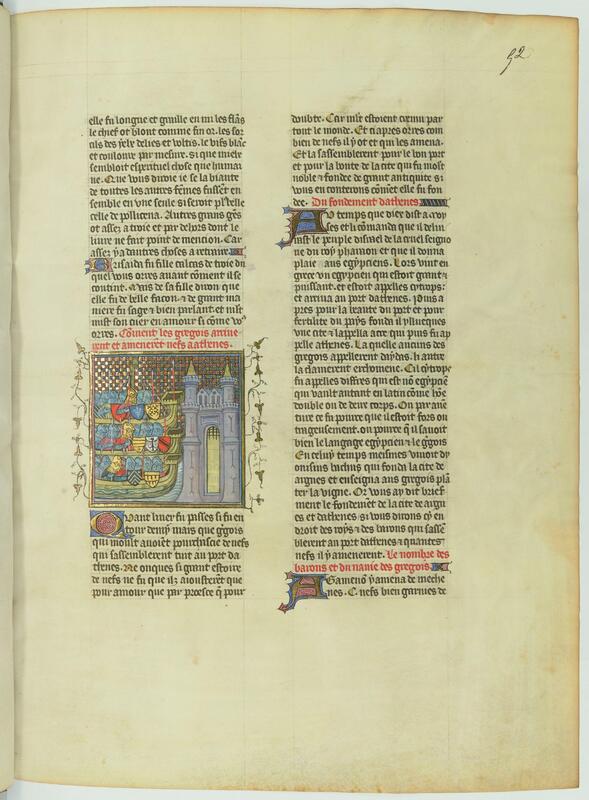 92
elle fu longue et graille en mi les flãs
le chief ot blont comme fin or. les sor
cils des yelx delies et voltis. le vis blãc
et couloure par mesure. si que mielx
sembloit espirituel chose que humai
ne. Que vous diroie ie se la biaute
de toutes les autres fẽmes fussẽt en
semble en vne seule si seroit plꝰ belle
celle de pollicena. Autres grans gẽs
ot assez a troie et par dehors dont le
liure ne fait point de mencion. Car
assez y a dautres choses a retraire
Brisaida fu fille calcas de troie du
quel vous orres auant cõment il se
contint. Mais de sa fille diron que
elle fu de belle facon. et de grant ma
niere fu sage et bien parlant. et mlt
mist son cuer en amour si cõme voꝰ
orres. Cõment les gregois arriue
rent et amenerẽt nefs a athenes.
Quant liuer fu passes si fu en
tour demy mars que g̃gois
qui moult auoiẽt pourchacie de nefs
qui sassemblerent tuit au port da
thenes. Ne onques si grant estoire
de nefs ne fu que ilz aiousterẽt que
pour amour que par proesce q̃ pour
doubte. Car mlt estoient cremu par
tout le monde. Et ci apres orres com
bien de nefs il y ot et qui les amena.
Et la sassemblerent pour le bon port
et pour la bonte de la cite qui fu mlt
noble et fondee de grant antiquite si
vous en conterons cõmẽt elle fu fon
dee. Du fondement dathenes
Au temps que dieu dist a moy
ses et li comanda que il deliu
rast le peuple disrael de la cruel seigno
rie du roy pharaon et que il donna
plaie aus egypciens. Lors vint en
grece vn egypcien qui estoit grant et
puissant. et estoit appelles cytrops.
et arriua au port dathenes. Puis a
pres pour la beaute du port et pour
fertilite du pays fonda il yllueques
vne cite et lappella acte qui puis fu ap
pelle athenes. La quelle aucuns des
gregois appellerent daydas. li autre
la clamerent erchomene. Cil cytrops
fu apelles diffres qui est nõ egypciẽ
qui vault autant en latin cõme hõe
double ou de deux corps. Ou par auẽ
ture ce fu pource que il estoit fors ou
engeusement. ou pource q̃ il sauoit
bien le langage egypcien et le g̃gois
En celuy temps meismes viuoit dy
onisius bachus qui fonda la cite de
argues et enseigna aus gregois plã
ter la vigne. Or vous ay dit brief
ment le fondemẽt de la cite de argues
et dathenes. si vous dirons cy en
droit des roys et des barons qui sassẽ
blerent au port dathenes et quantes
nefs il y amenerent. Le nombre des
barons et du nauie des gregois.
Agamenõ y amena de meche
nes. C. nefs bien garnies de